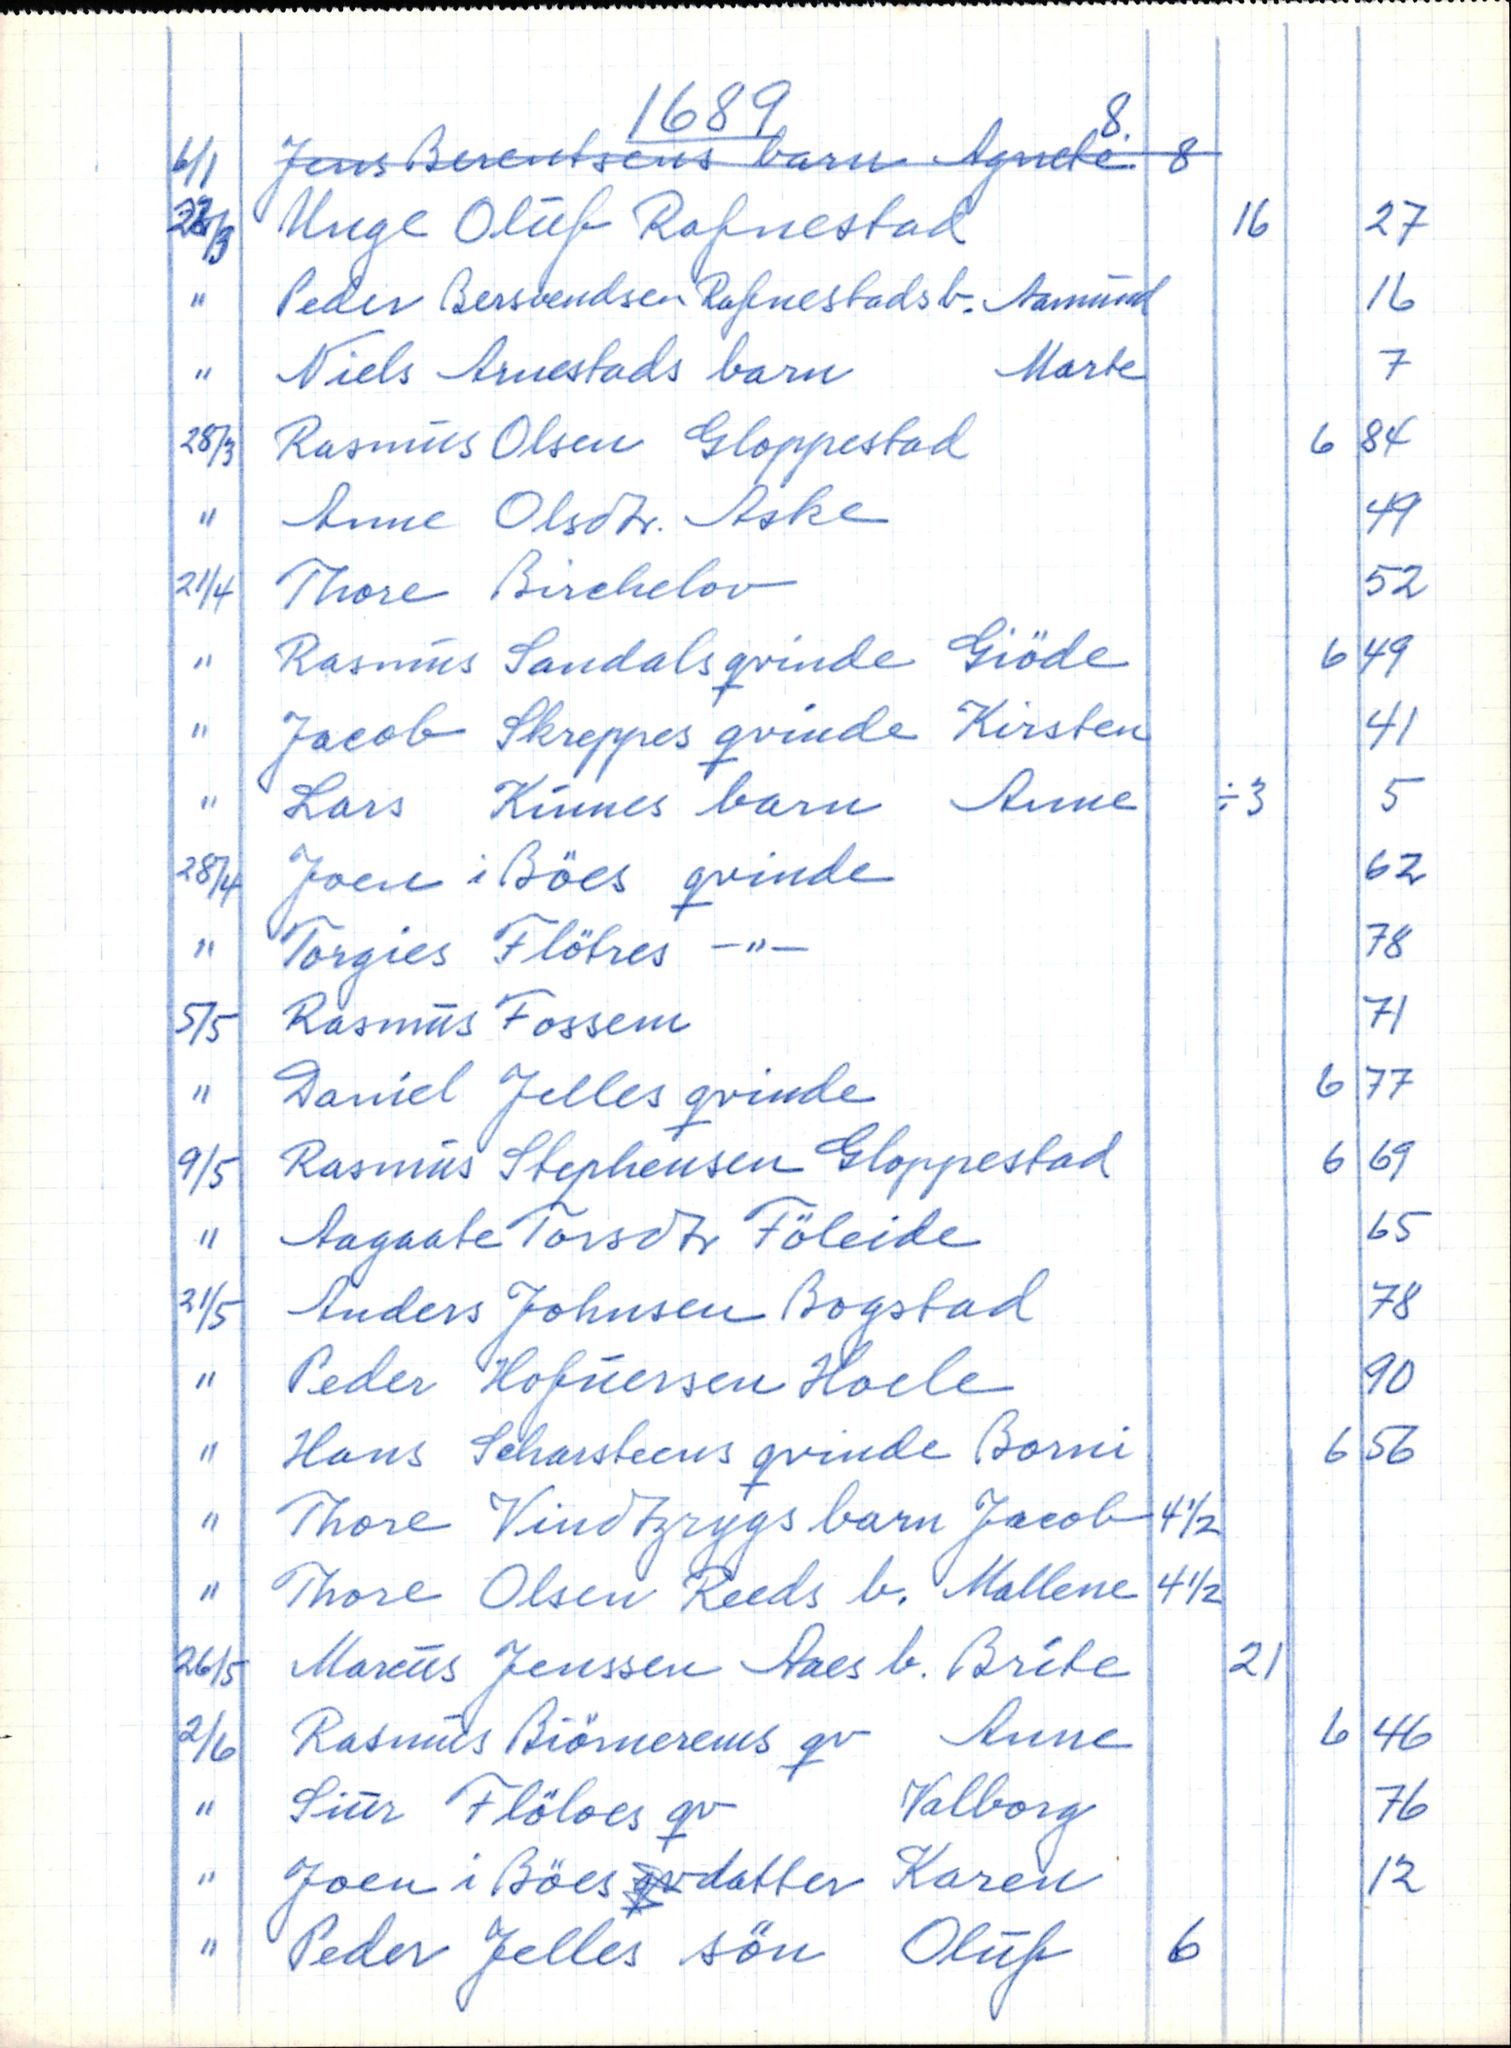 1689
8.
6/1 Jens Berentsens barn Agnete 8
/3 Unge Oluf Rafnestad 16 27
" Peder Bersvendsen Rafnestads b. Aamund 16
" Niels Arnestads barn Marte 7
28/3 Rasmus Olsen Gloppestad 6 84
" Anne Olsdtr. Aske 49
21/4 Thore Birchelov 52
" Rasmus Sandals qvinde Giöde 6 49
" Jacob Skreppes qvinde Kirsten 41
" Lars Kinnes barn Anne ÷3 5
28/4 Joen i Böes qvinde 62
" Torgies Flötres —"— 78
5/5 Rasmus Fossem 71
" Daniel Jelles qvinde 6 77
9/5 Rasmus Stephensen Gloppestad 6 69
" Aagaate Torsdtr Föleide 65
21/5 Anders Johnsen Bogstad 78
" Peder Hofuersen Hoele 90
" Hans Scharsteens qvinde Borni 6 56
" Thore Vindtzrygs barn Jacob 4 1/2
" Thore Olsen Reeds b. Mallene 4 1/2
26/5 Marcus Jenssen Aaes b. Brite 21
2/6 Rasmus Biörnerems qv Anne 6 46
" Siur Flöloes qv Valborg 76
" Joen i Böes qv datter Karen 12
" Peder Jelles sön Oluf 6